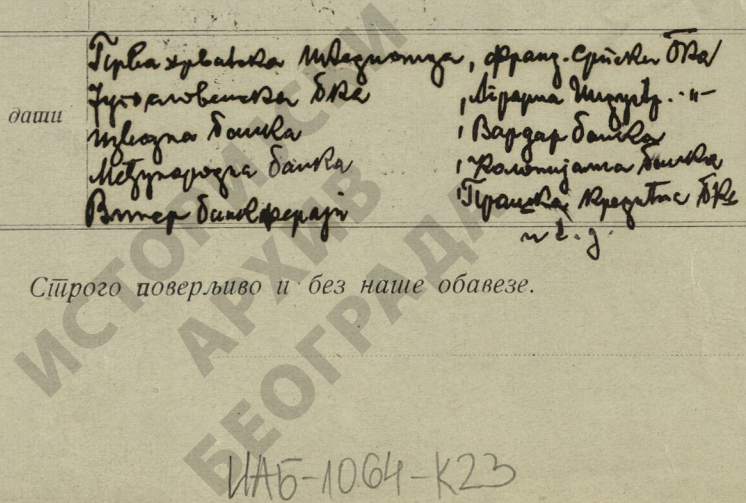 Прва хрватска штедионица, франц. Српска бка
Југословенска бка, Аграрна Индустр. -"-
Извозна банка, Вардар банка
даши
Међународна банка, Колонијална банка
Винер банкферајн, Прашка кредитна бка
и т. д.
Строго поверљиво и без наше обавезе.
ИСТОРИЈСКИ
АРХИВ
БЕОГРАДА
ИАБ-1064-К23